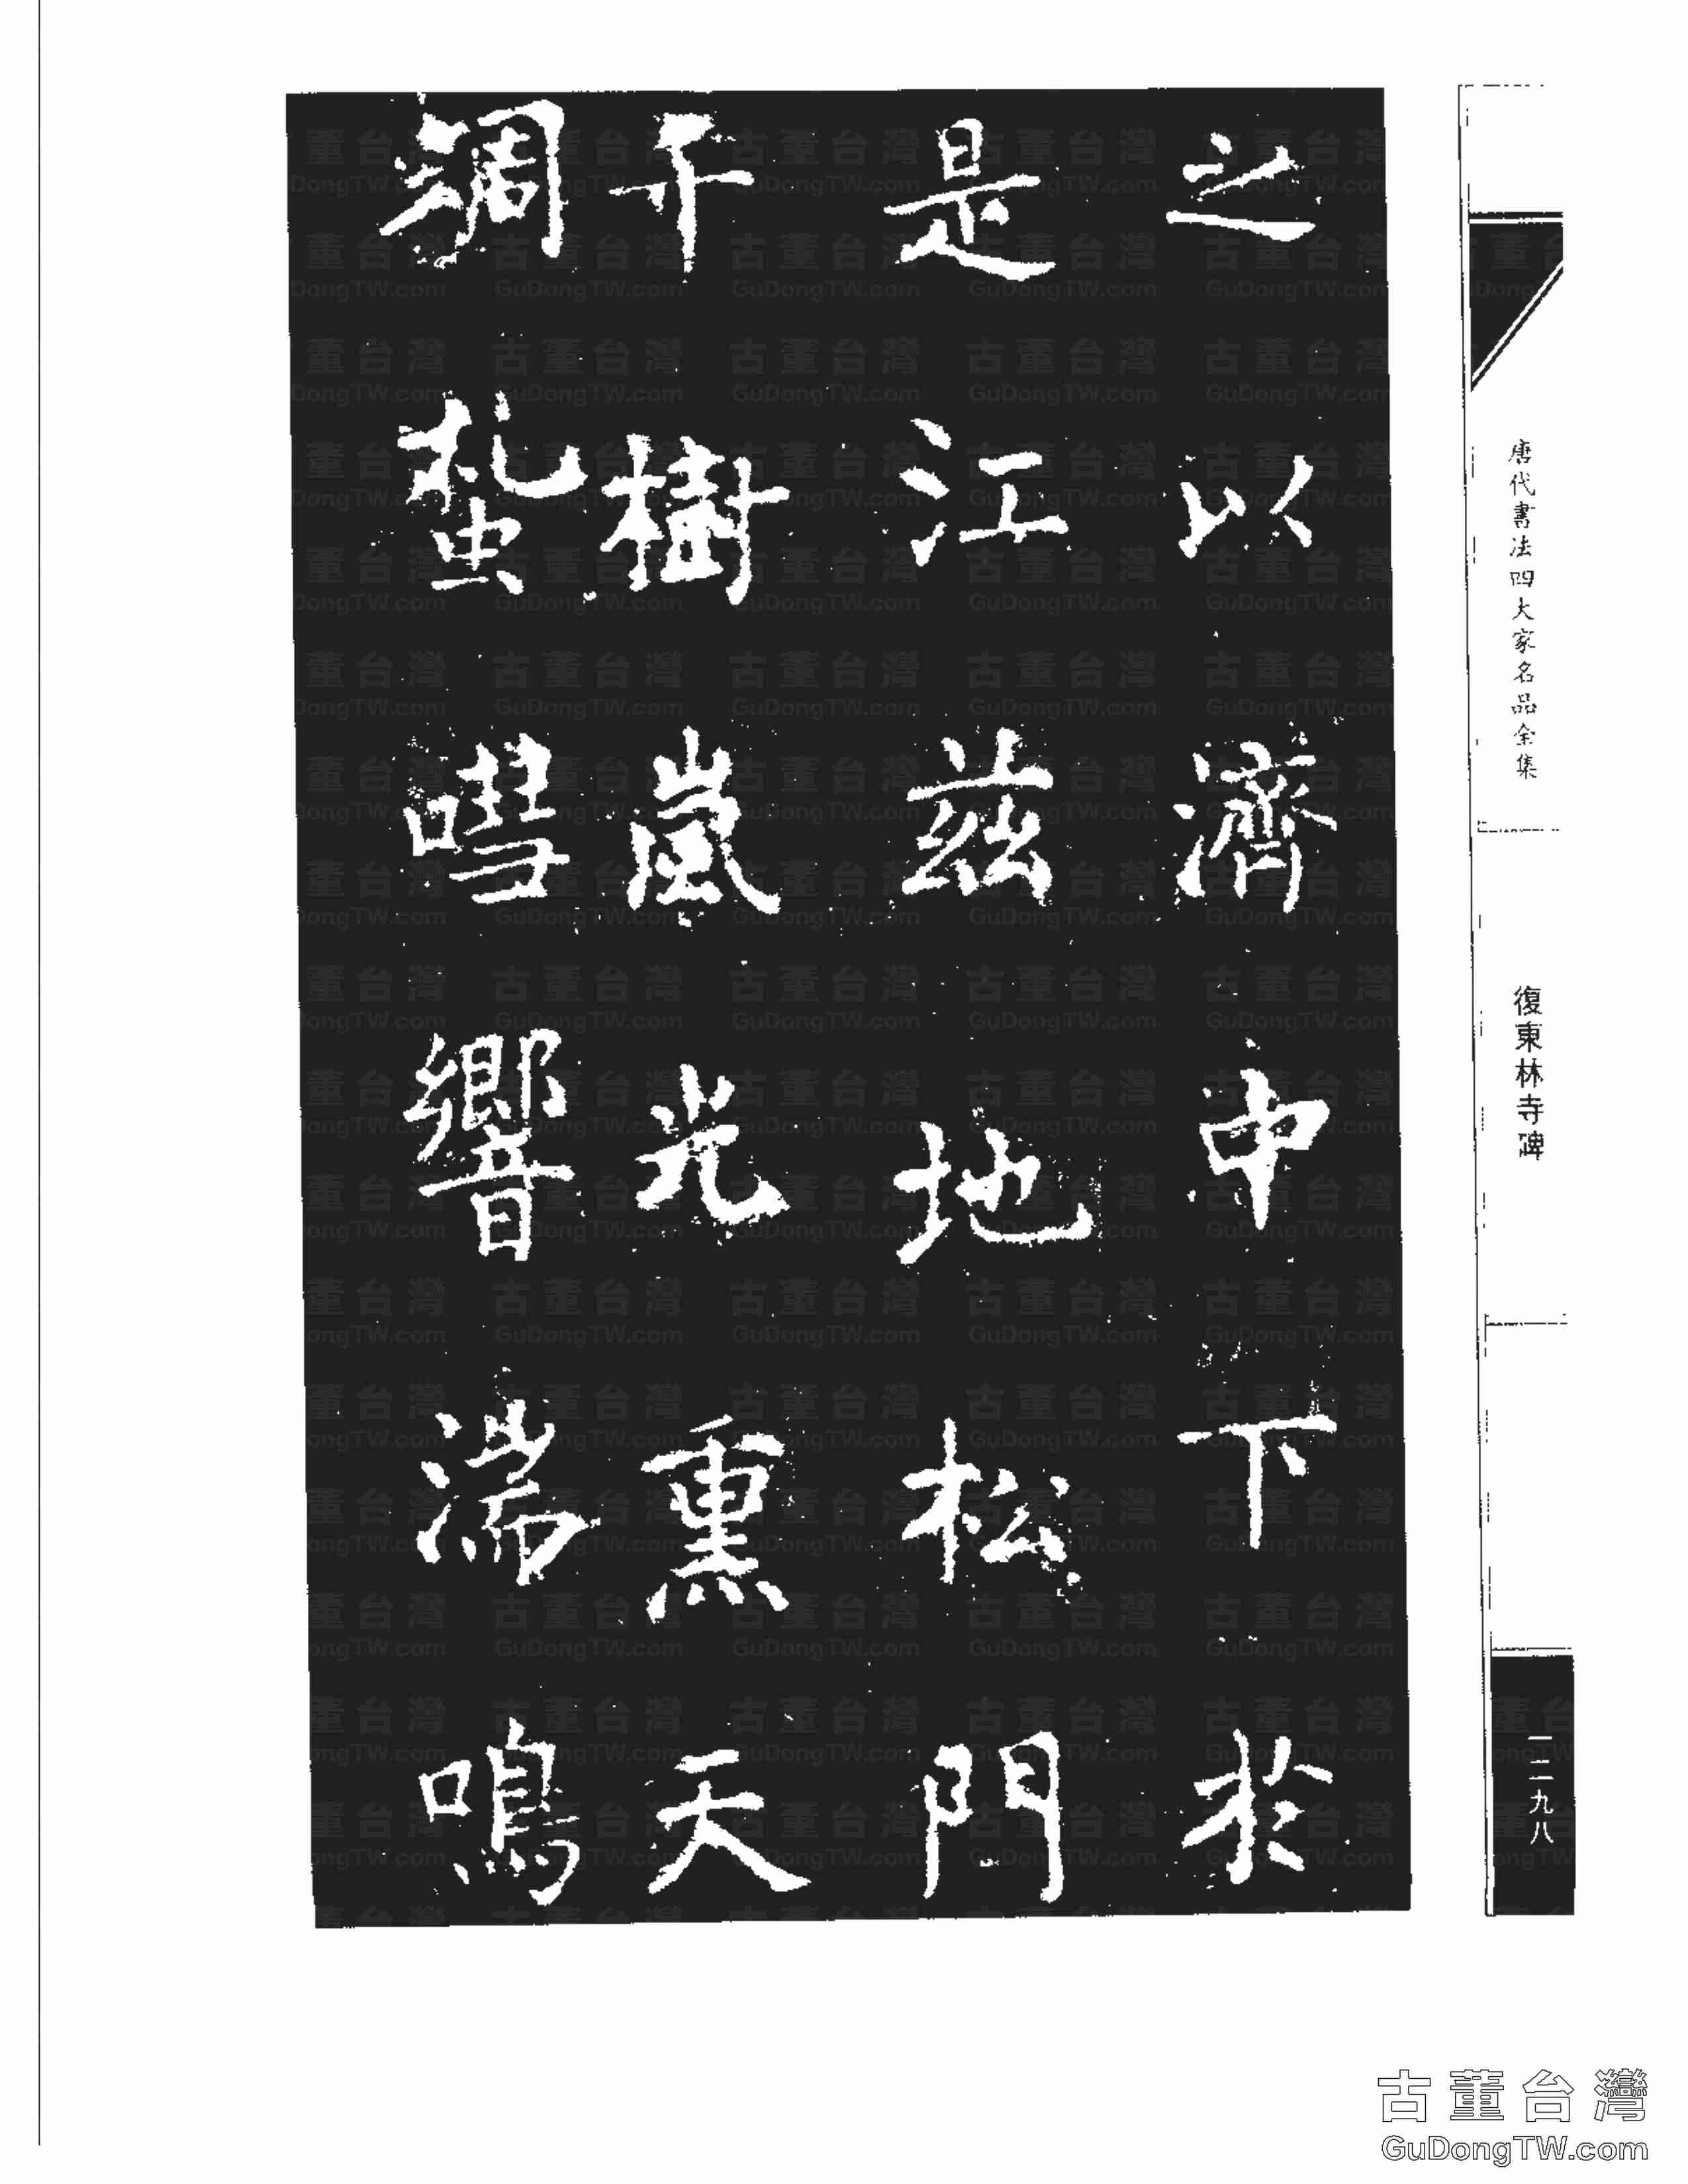 之以濟中下於
是江茲地松門
千樹嵐光熏天
蜩蜇嘒響湍鳴
唐代書法四大家名品全集
復東林寺碑
一二九八
古董台灣
GuDongTW.com